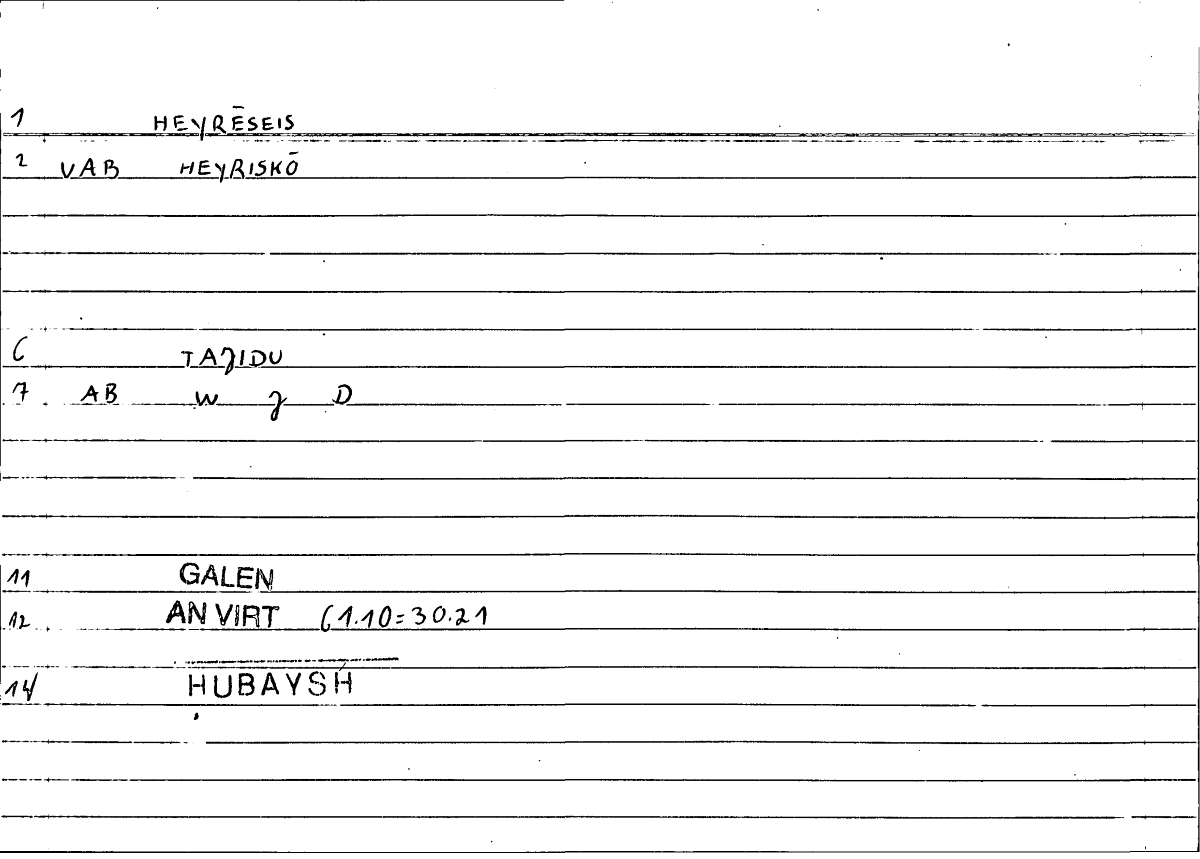 1 HEYRĒSEIS
2 VAB HEYRISKŌ
6 TAJIDU
7 AB W J D
11 GALEN
12 AN VIRT 61.10=30.21
14 ḤUBAYSH